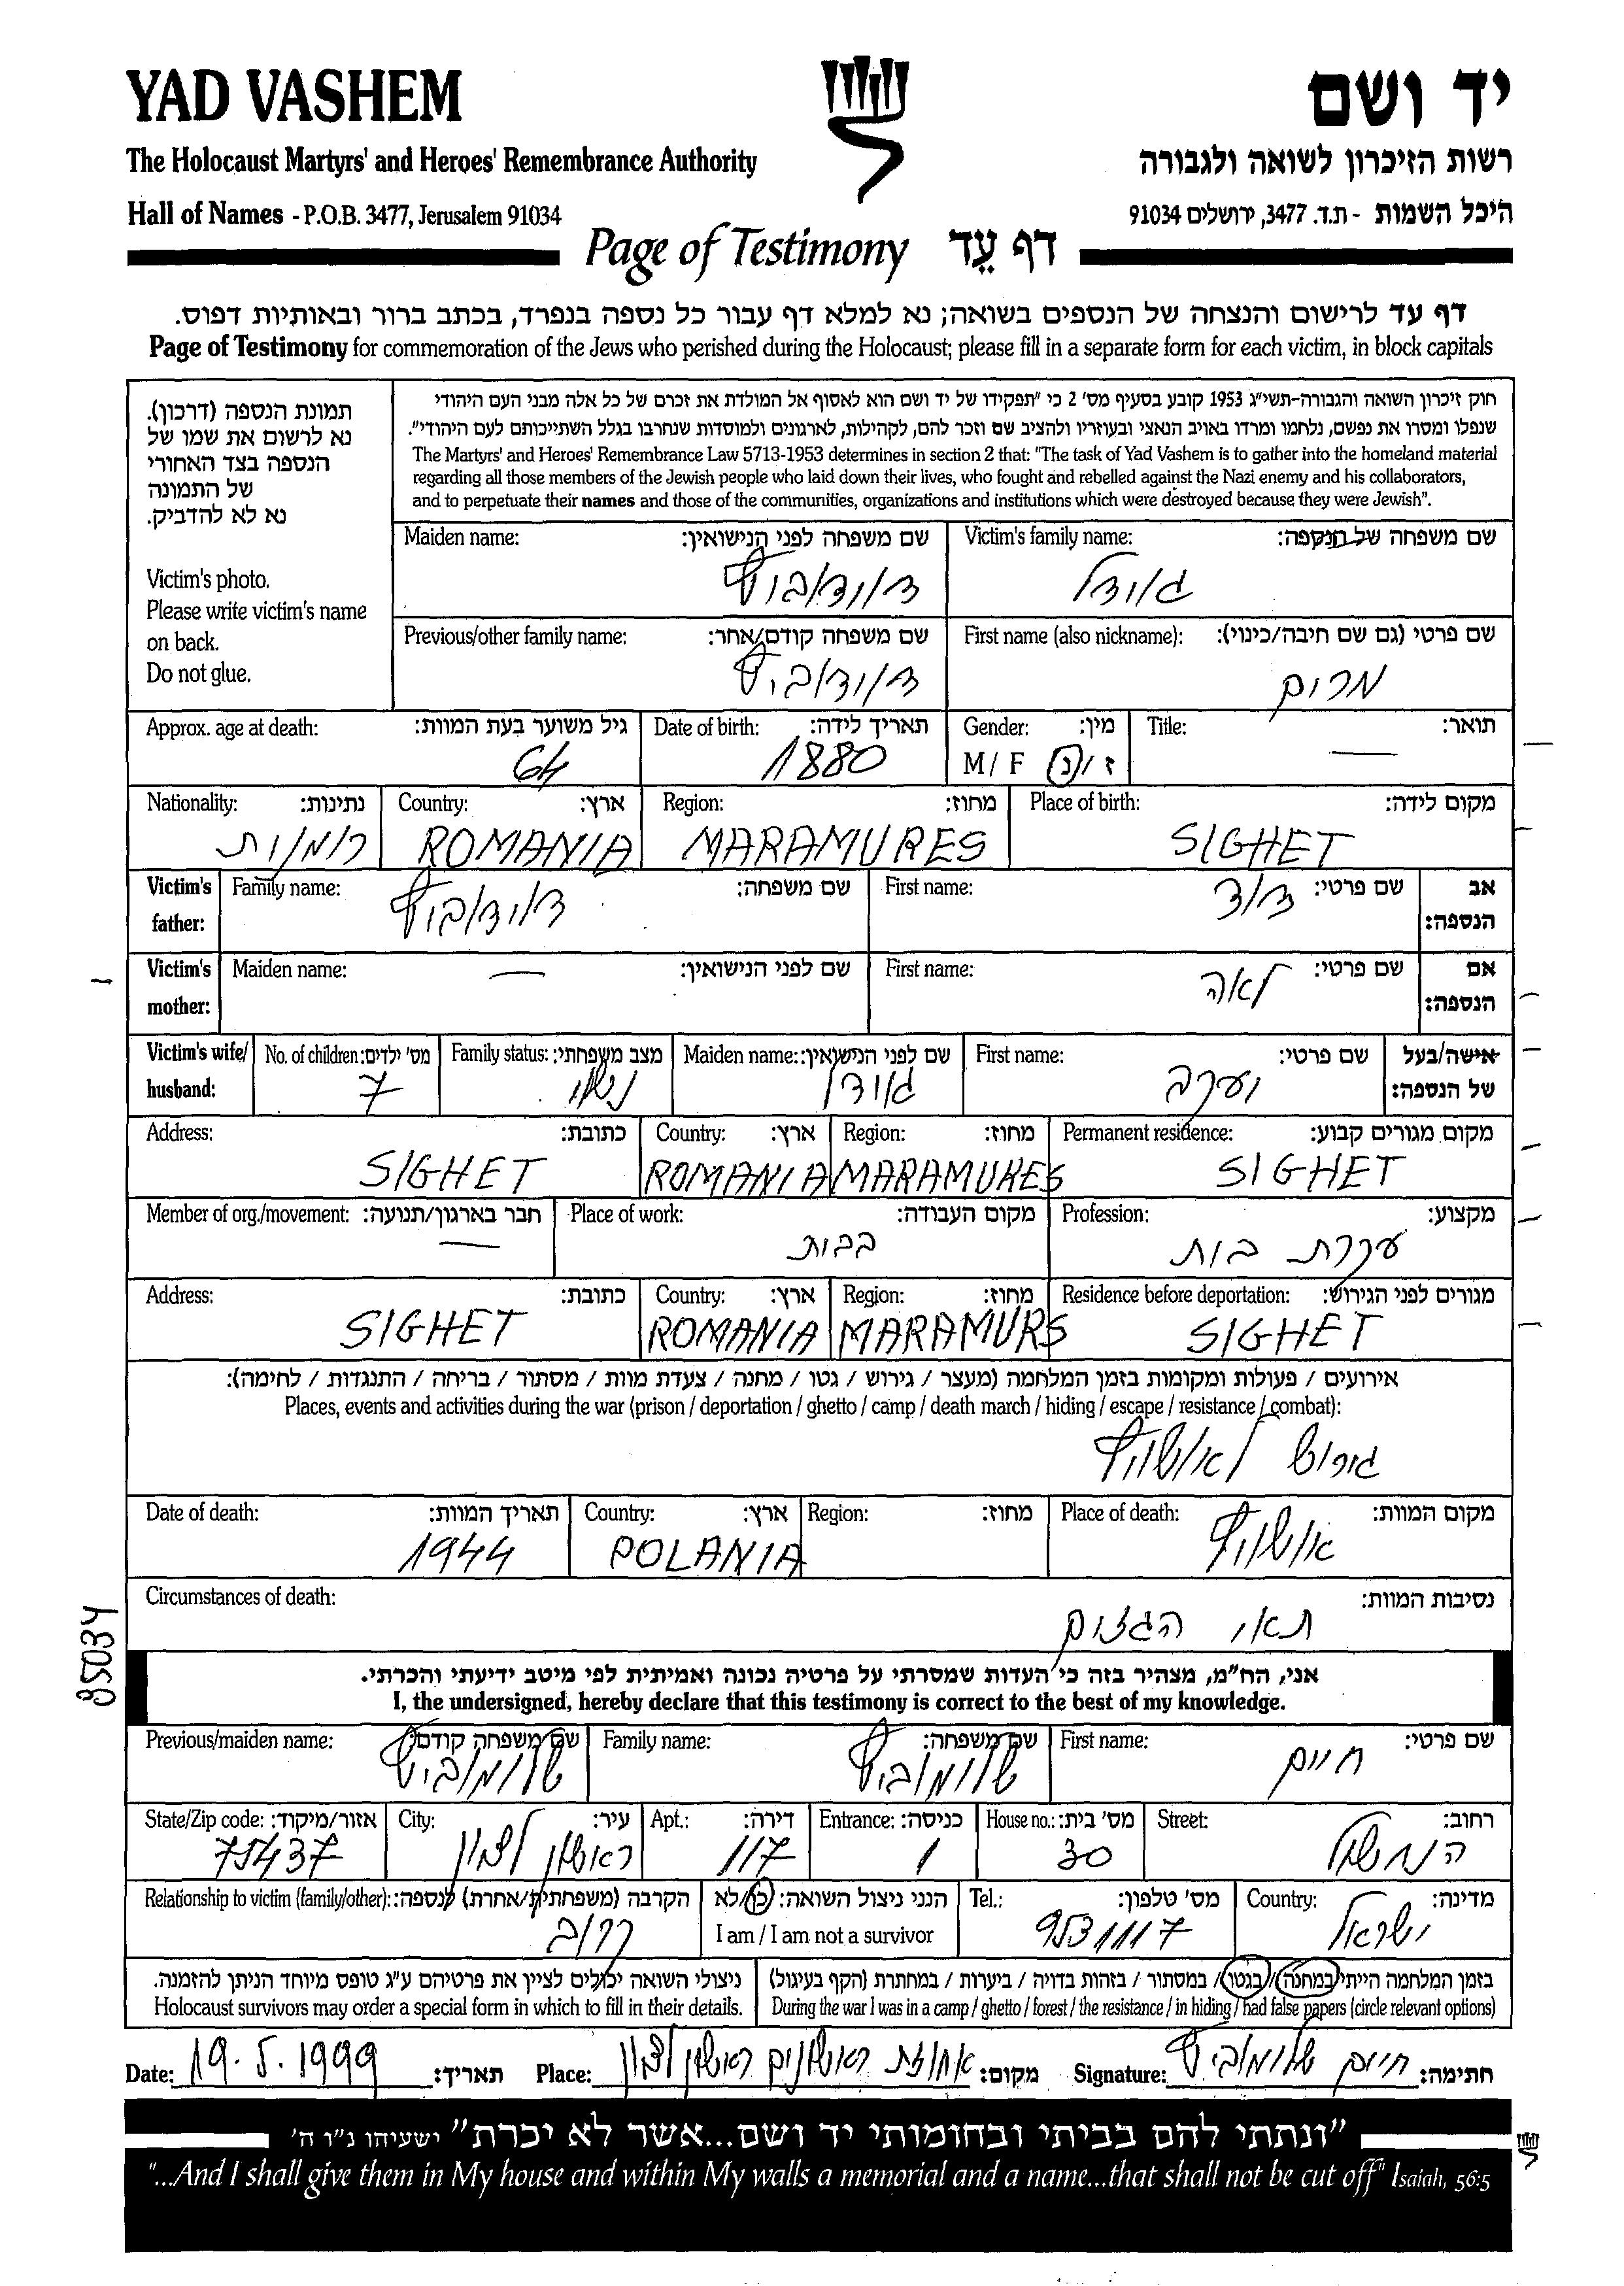 YAD VASHEM
יד ושם
The Holocaust Martyrs' and Heroes' Remembrance Authority
רשות הזיכרון לשואה ולגבורה
Hall of Names - P.O.B. 3477, Jerusalem 91034
היכל השמות - ת.ד. 3477, ירושלים 91034
Page of Testimony דף עֵד
דף עד לרישום והנצחה של הנספים בשואה; נא למלא דף עבור כל נספה בנפרד, בכתב ברור ובאותיות דפוס.
Page of Testimony for commemoration of the Jews who perished during the Holocaust; please fill in a separate form for each victim, in block capitals
תמונת הנספה (דרכון).
נא לרשום את שמו של
הנספה בצד האחורי
של התמונה
נא לא להדביק.
Victim's photo.
Please write victim's name
on back.
Do not glue.
חוק זיכרון השואה והגבורה-תשי"ג 1953 קובע בסעיף מס' 2 כי "תפקידו של יד ושם הוא לאסוף אל המולדת את זכרם של כל אלה מבני העם היהודי
שנפלו ומסרו את נפשם, נלחמו ומרדו באויב הנאצי ובעוזריו ולהציב שם וזכר להם, לקהילות, לארגונים ולמוסדות שנחרבו בגלל השתייכותם לעם היהודי".
The Martyrs' and Heroes' Remembrance Law 5713-1953 determines in section 2 that: "The task of Yad Vashem is to gather into the homeland material
regarding all those members of the Jewish people who laid down their lives, who fought and rebelled against the Nazi enemy and his collaborators,
and to perpetuate their names and those of the communities, organizations and institutions which were destroyed because they were Jewish".
Victim's family name: שם משפחה של הנספה:
Maiden name: שם משפחה לפני הנישואין:
דוידוביץ
First name (also nickname): שם פרטי (גם שם חיבה/כינוי):
מרים
Previous/other family name: שם משפחה קודם/אחר:
דוידוביץ
Title: תואר: —
Gender: מין: M / F ז / נ
Date of birth: תאריך לידה: 1880
Approx. age at death: גיל משוער בעת המוות: 64
Place of birth: מקום לידה: SIGHET
Region: מחוז: MARAMURES
Country: ארץ: ROMANIA
Nationality: נתינות: רומנית
Victim's father: אב הנספה:
First name: שם פרטי: דוד
Family name: שם משפחה: דוידוביץ
Victim's mother: אם הנספה:
First name: שם פרטי: לאה
Maiden name: שם לפני הנישואין: —
Victim's wife/ husband: אישה/בעל של הנספה:
First name: שם פרטי:
Maiden name: שם לפני הנישואין:
Family status: מצב משפחתי: נשוי
No. of children: מס' ילדים: 7
Permanent residence: מקום מגורים קבוע: SIGHET
Region: מחוז: MARAMURES
Country: ארץ: ROMANIA
Address: כתובת: SIGHET
Profession: מקצוע: עקרת בית
Place of work: מקום העבודה: בבית
Member of org./movement: חבר בארגון/תנועה: —
Residence before deportation: מגורים לפני הגירוש: SIGHET
Region: מחוז: MARAMURS
Country: ארץ: ROMANIA
Address: כתובת: SIGHET
אירועים / פעולות ומקומות בזמן המלחמה (מעצר / גירוש / גטו / מחנה / צעדת מוות / מסתור / בריחה / התנגדות / לחימה):
Places, events and activities during the war (prison / deportation / ghetto / camp / death march / hiding / escape / resistance / combat):
גירוש לאושוויץ
Place of death: מקום המוות: אושוויץ
Region: מחוז:
Country: ארץ: POLANIA
Date of death: תאריך המוות: 1944
Circumstances of death: נסיבות המוות:
תאי הגזים
אני, הח"מ, מצהיר בזה כי העדות שמסרתי על פרטיה נכונה ואמיתית לפי מיטב ידיעתי והכרתי.
I, the undersigned, hereby declare that this testimony is correct to the best of my knowledge.
First name: שם פרטי: חיים
Family name: שם משפחה: שלומוביץ
Previous/maiden name: שם משפחה קודם: שלומוביץ
Street: רחוב:
House no.: מס' בית: 30
Entrance: כניסה: 1
Apt.: דירה: 117
City: עיר: ראשון לציון
State/Zip code: אזור/מיקוד: 75437
Country: מדינה: ישראל
Tel.: מס' טלפון: 9531117
הנני ניצול השואה: כן/לא
I am / I am not a survivor
Relationship to victim (family/other): הקרבה (משפחתית/אחרת) לנספה: קרוב
בזמן המלחמה הייתי במחנה / בגטו / במסתור / בזהות בדויה / ביערות / במחתרת (הקף בעיגול)
During the war I was in a camp / ghetto / forest / the resistance / in hiding / had false papers (circle relevant options)
ניצולי השואה יכולים לציין את פרטיהם ע"ג טופס מיוחד הניתן להזמנה.
Holocaust survivors may order a special form in which to fill in their details.
Date: 19.5.1999 תאריך: Place: אחוזת ראשונים ראשון לציון מקום: Signature: חיים שלומוביץ חתימה:
"ונתתי להם בביתי ובחומותי יד ושם...אשר לא יכרת" ישעיהו נ"ו ה'
"...And I shall give them in My house and within My walls a memorial and a name...that shall not be cut off" Isaiah, 56:5